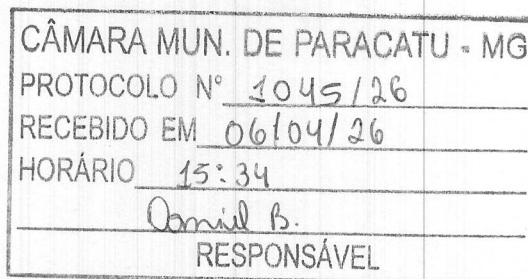 CÂMARA MUN. DE PARACATU - MG
PROTOCOLO Nº 1045/26
RECEBIDO EM 06/04/26
HORÁRIO 15:34
Daniel B.
RESPONSÁVEL